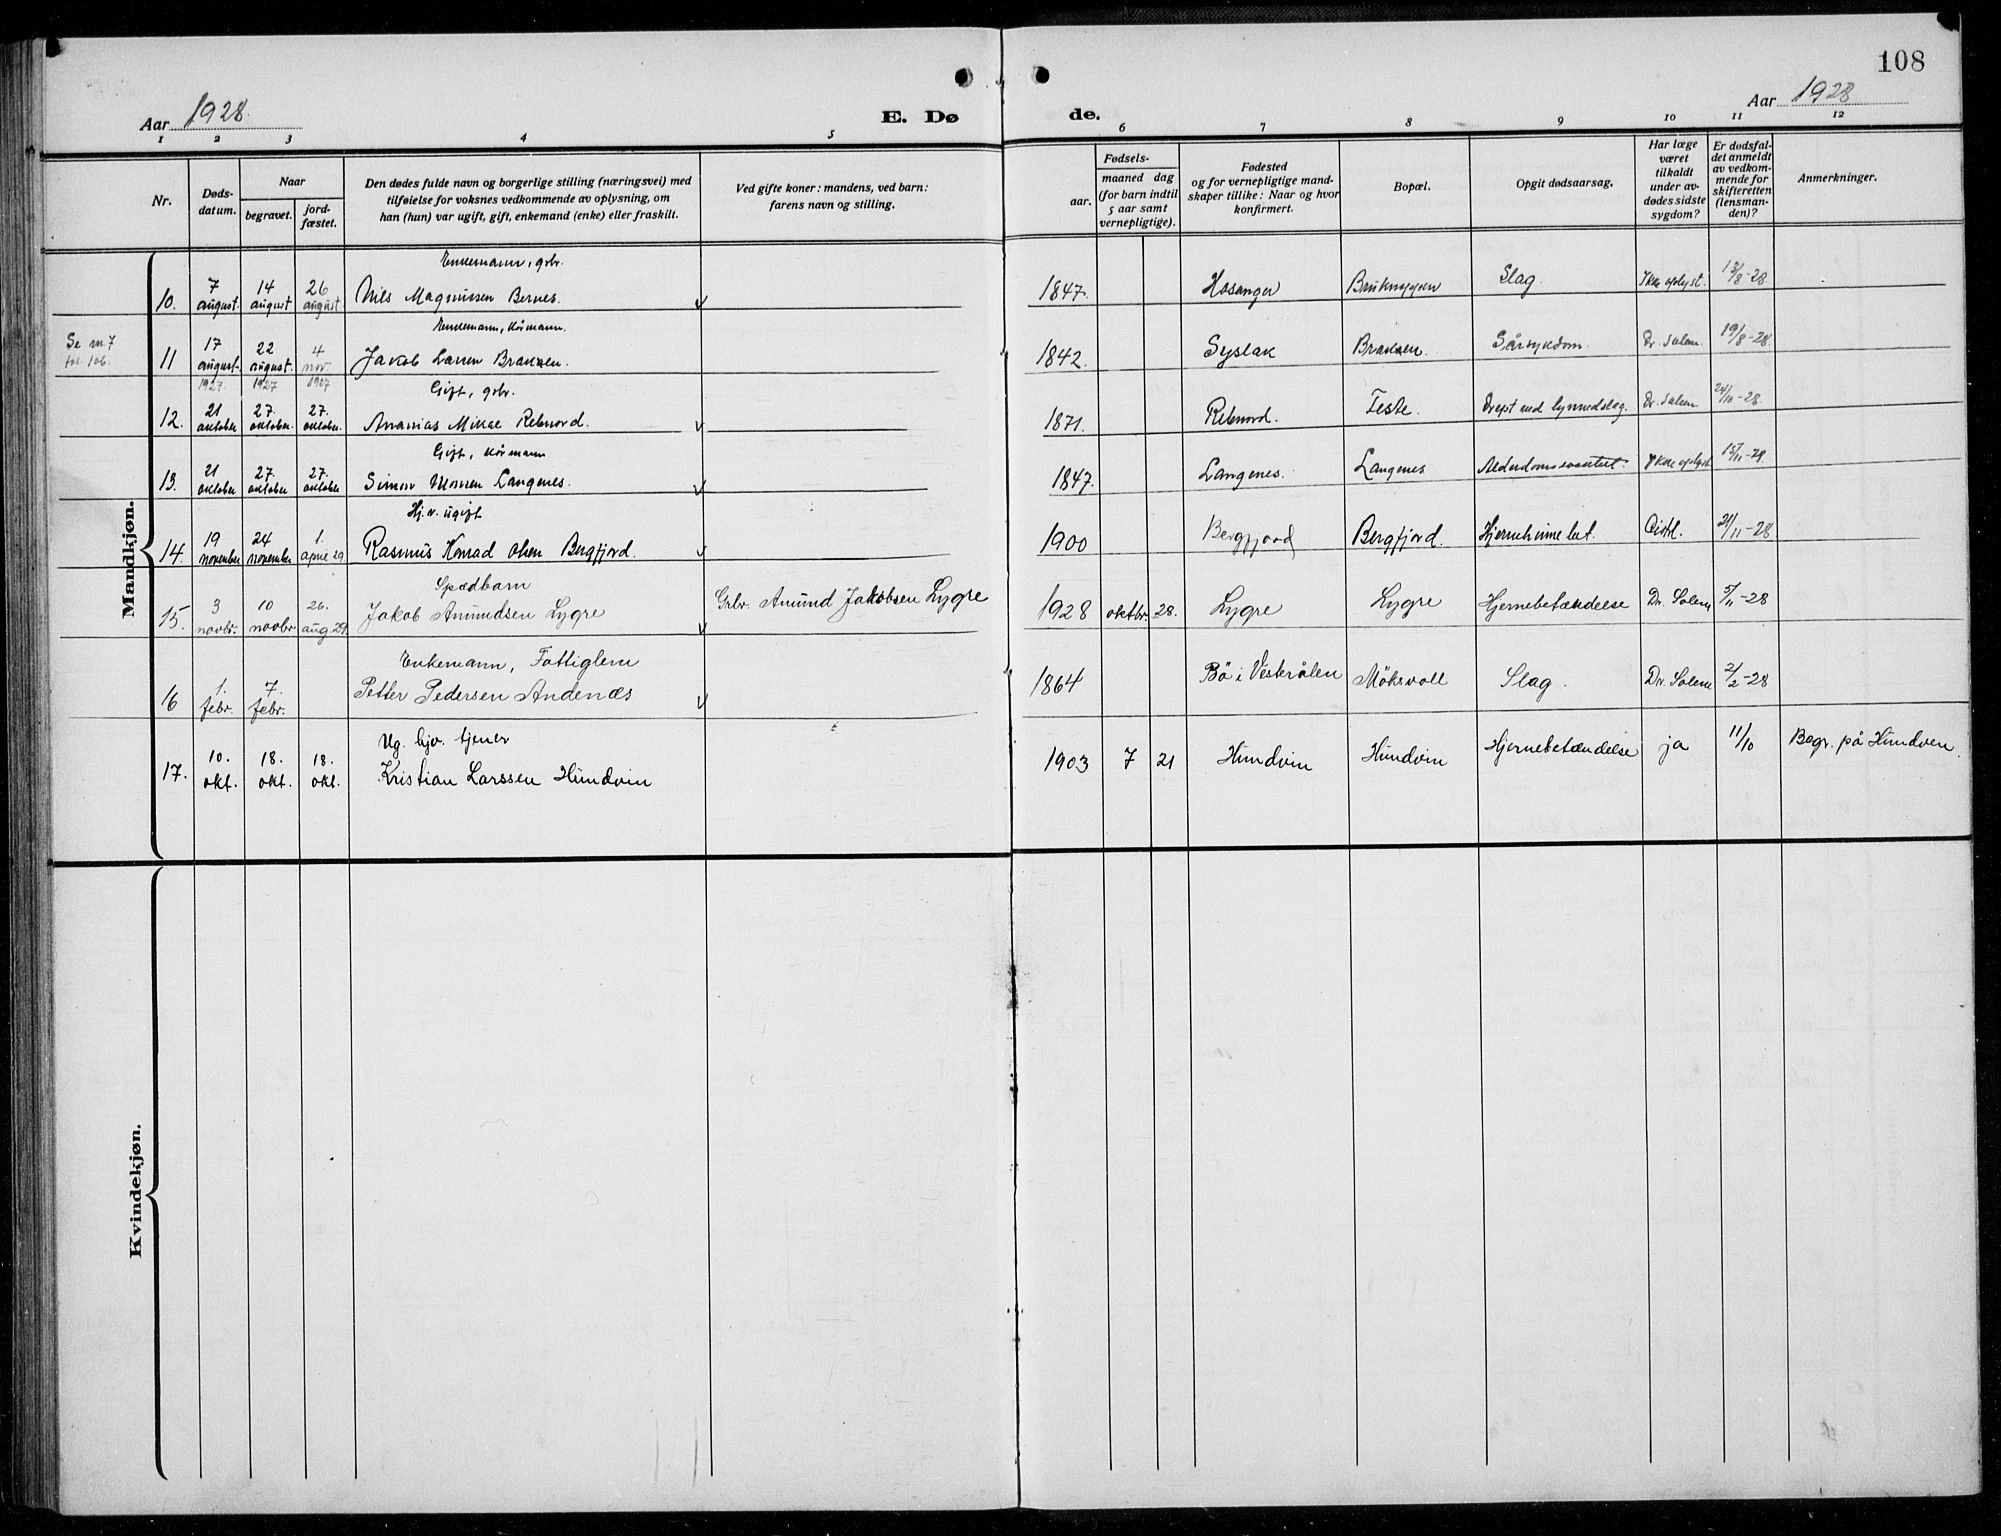 108
Aar 1928
E. Døde.
Aar 1928
1 2 3 4 5 6 7 8 9 10 11 12
Nr.
Døds-
datum.
Naar
begravet.
jord-
fæstet.
Den dødes fulde navn og borgerlige stilling (næringsvei) med
tilføielse for voksnes vedkommende av oplysning, om
han (hun) var ugift, gift, enkemand (enke) eller fraskilt.
Ved gifte koner: mandens, ved barn:
farens navn og stilling.
Fødsels-
aar.
maaned dag
(for barn indtil
5 aar samt
vernepligtige).
Fødested
og for vernepligtige mand-
skaper tillike: Naar og hvor
konfirmert.
Bopæl.
Opgit dødsaarsag.
Har læge
været
tilkaldt
under av-
dødes sidste
sygdom?
Er dødsfal-
det anmeldt
av vedkom-
mende for
skifteretten
(lensman-
den)?
Anmerkninger.
Mandkjøn.
Enkemann, grbr.
10. 7 august. 14 august 26 august Nils Magnussen Bernes. 1847. Hosanger Slag. Ikke oplyst. 13/8-28
Se nr. 7
fol. 106.
Enkemann, Kårmann.
11 17 august. 22 august. 4 nov. Jakob Larsen Braken. 1842. Syslak Braken. Sårsykdom. Dr. Solem. 19/8-28
1927. 1927 1927
Gift, grbr.
12. 21 oktober 27. oktober. 27. oktober. Ananias Mikae Rebnord. 1871. Rebnord. Feste. Drept ved lynnedslag. Dr. Solem. 24/10-28.
Gift, Kårmann
13. 21 oktober 27. oktober 27. oktober Simon Monsen Langenes. 1847. Langenes. Langenes Ikke oplyst 15/11-28
Hj.v. ugift
14. 19 november 24 november 1. april 29 Rasmus Konrad Olsen Bergfjord. 1900 Bergfjord Bergfjord. 21/11-28
Spædbarn
15. 3 novbr. 10 novbr 26. aug. 29 Jakob Amundsen Lygre Grbr. Amund Jakobsen Lygre 1928 oktbr. 28. Lygre Lygre Hjernebetændelse Dr. Solem 5/11-28
Enkemann, Fattiglem
16 1. febr. 7. febr. Petter Pedersen Andenæs 1864 Bö i Vesterålen Möksvoll Slag. Dr. Solem 2/2-28
Ug. hjv. tjener
17. 10. okt. 18. okt. 18. okt. Kristian Larssen Hundvin 1903 7 21 Hundvin Hundvin Hjernebetændelse ja 11/10 Begr. på Hundven.
Kvindekjøn.